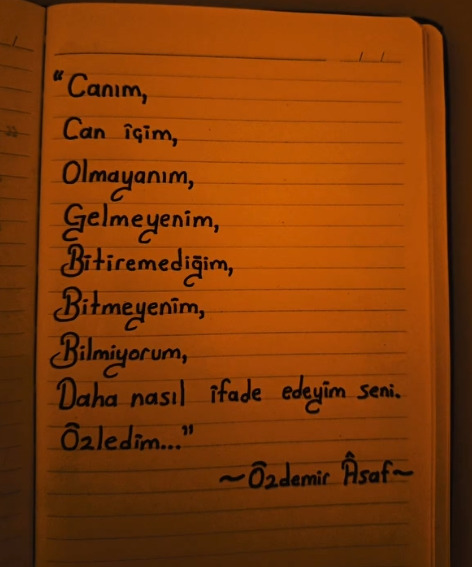 "Canım,
Can içim,
Olmayanım,
Gelmeyenim,
Bitiremediğim,
Bitmeyenim,
Bilmiyorum,
Daha nasıl ifade edeyim seni.
Özledim..."
~Özdemir Âsaf~